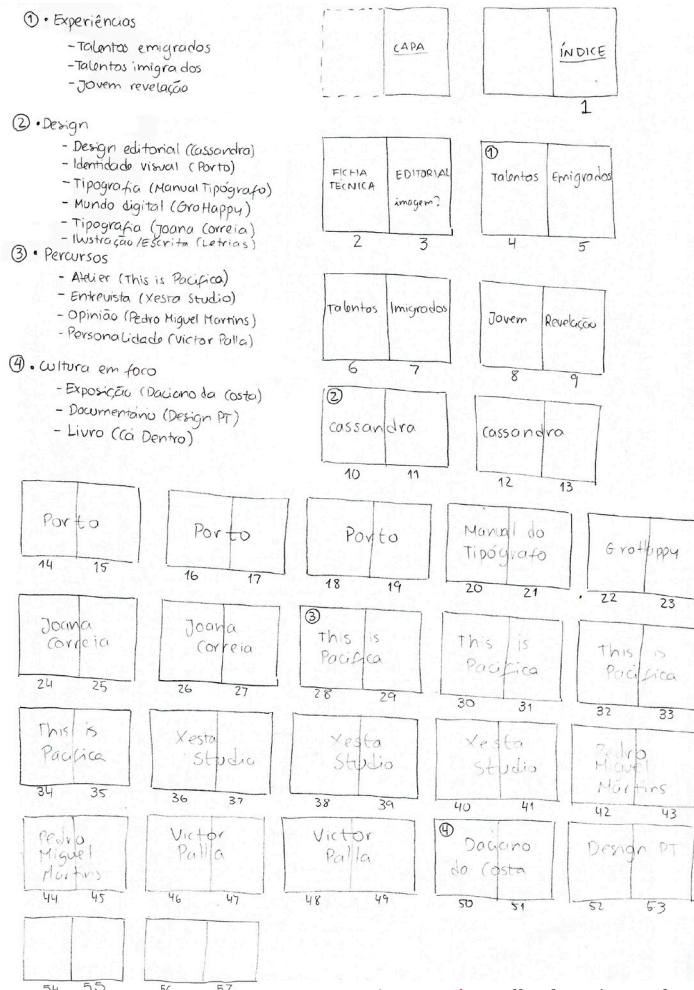 ① • Experiências
- Talentos emigrados
- Talentos imigrados
- Jovem revelação
② • Design
- Design editorial (Cassandra)
- Identidade visual (Porto)
- Tipografia (Manual Tipógrafo)
- Mundo digital (GroHappy)
- Tipografia (Joana Correia)
- Ilustração/Escrita (Letrias)
③ • Percursos
- Atelier (This is Pacifica)
- Entrevista (Xesta Studio)
- Opinião (Pedro Miguel Martins)
- Personalidade (Victor Palla)
④ • Cultura em foco
- Exposição (Daciano da Costa)
- Documentário (Design PT)
- Livro (Cá Dentro)
CAPA
ÍNDICE
1
FICHA
TÉCNICA
EDITORIAL
imagem?
2 3
①
Talentos Emigrados
4 5
Talentos Imigrados
6 7
Jovem Revelação
8 9
②
Cassandra
10 11
Cassandra
12 13
Porto
14 15
Porto
16 17
Porto
18 19
Manual do
Tipógrafo
20 21
GroHappy
22 23
Joana
Correia
24 25
Joana
Correia
26 27
③
This is
Pacifica
28 29
This is
Pacifica
30 31
This is
Pacifica
32 33
This is
Pacifica
34 35
Xesta
Studio
36 37
Xesta
Studio
38 39
Xesta
Studio
40 41
Pedro
Miguel
Martins
42 43
Pedro
Miguel
Martins
44 45
Victor
Palla
46 47
Victor
Palla
48 49
④
Daciano
da Costa
50 51
Design PT
52 53
54 55
56 57